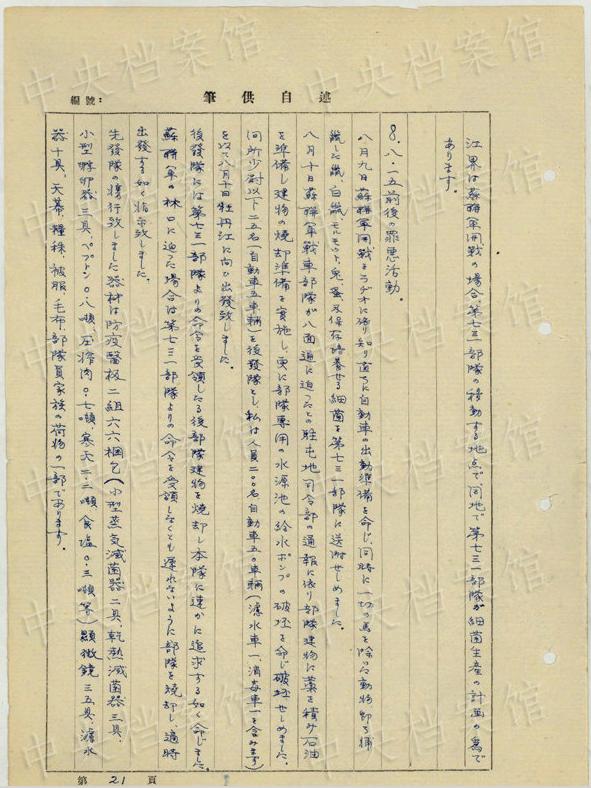 述自供筆
編號：
江界は蘇聯軍開戰の場合、第七三一部隊の移動する地点で、同地で第七三一部隊が細菌生産の計画の為で
あります。
8. 八・一五前後の罪悪活動。
八月九日蘇聯軍開戰をラヂオに依り知り直ちに自動車の出動準備を命じ、同時に一切の馬を除いた動物即ち捕
獲した鼠、白鼠、モルモット、兎、蚤及保存培養せる細菌を第七三一部隊に送附せしめました。
八月十日蘇聯軍戰車部隊が八面通に迫つたとの駐屯地司令部の通報に依り部隊建物に藁を積み石油
を準備し建物の焼却準備を実施し、更に部隊専用の水源池の給水ポンプの破壊を命じ破壊せしめました。
同所少尉以下二五名(自動車五車輌)を後發隊とし、私は人員二〇〇名自動車五〇車輌(濾水車一、消毒車一を含みます)
を以て八月十日牡丹江に向ひ出發致しました。
後發隊には第七三一部隊よりの命令を受領したる後部隊建物を焼却し本隊に速かに追求する如く命じました。
蘇聯軍の林口に迫つた場合は第七三一部隊よりの命令を受領しなくとも遅れないように部隊を焼却し、適時
出發する如く指示致しました。
先發隊の携行致しました器材は防疫醫極二組六六梱包(小型蒸気滅菌器二具、乾熱滅菌器三具、
小型孵卵器三具、ペプトン〇・八噸、圧搾肉〇・七噸、寒天二・二噸、食塩〇・三噸等)顕微鏡三五具、濾水
器十具、天幕、糧秣、被服、毛布、部隊員家族の荷物の一部であります。
第 21 頁
中央档案馆